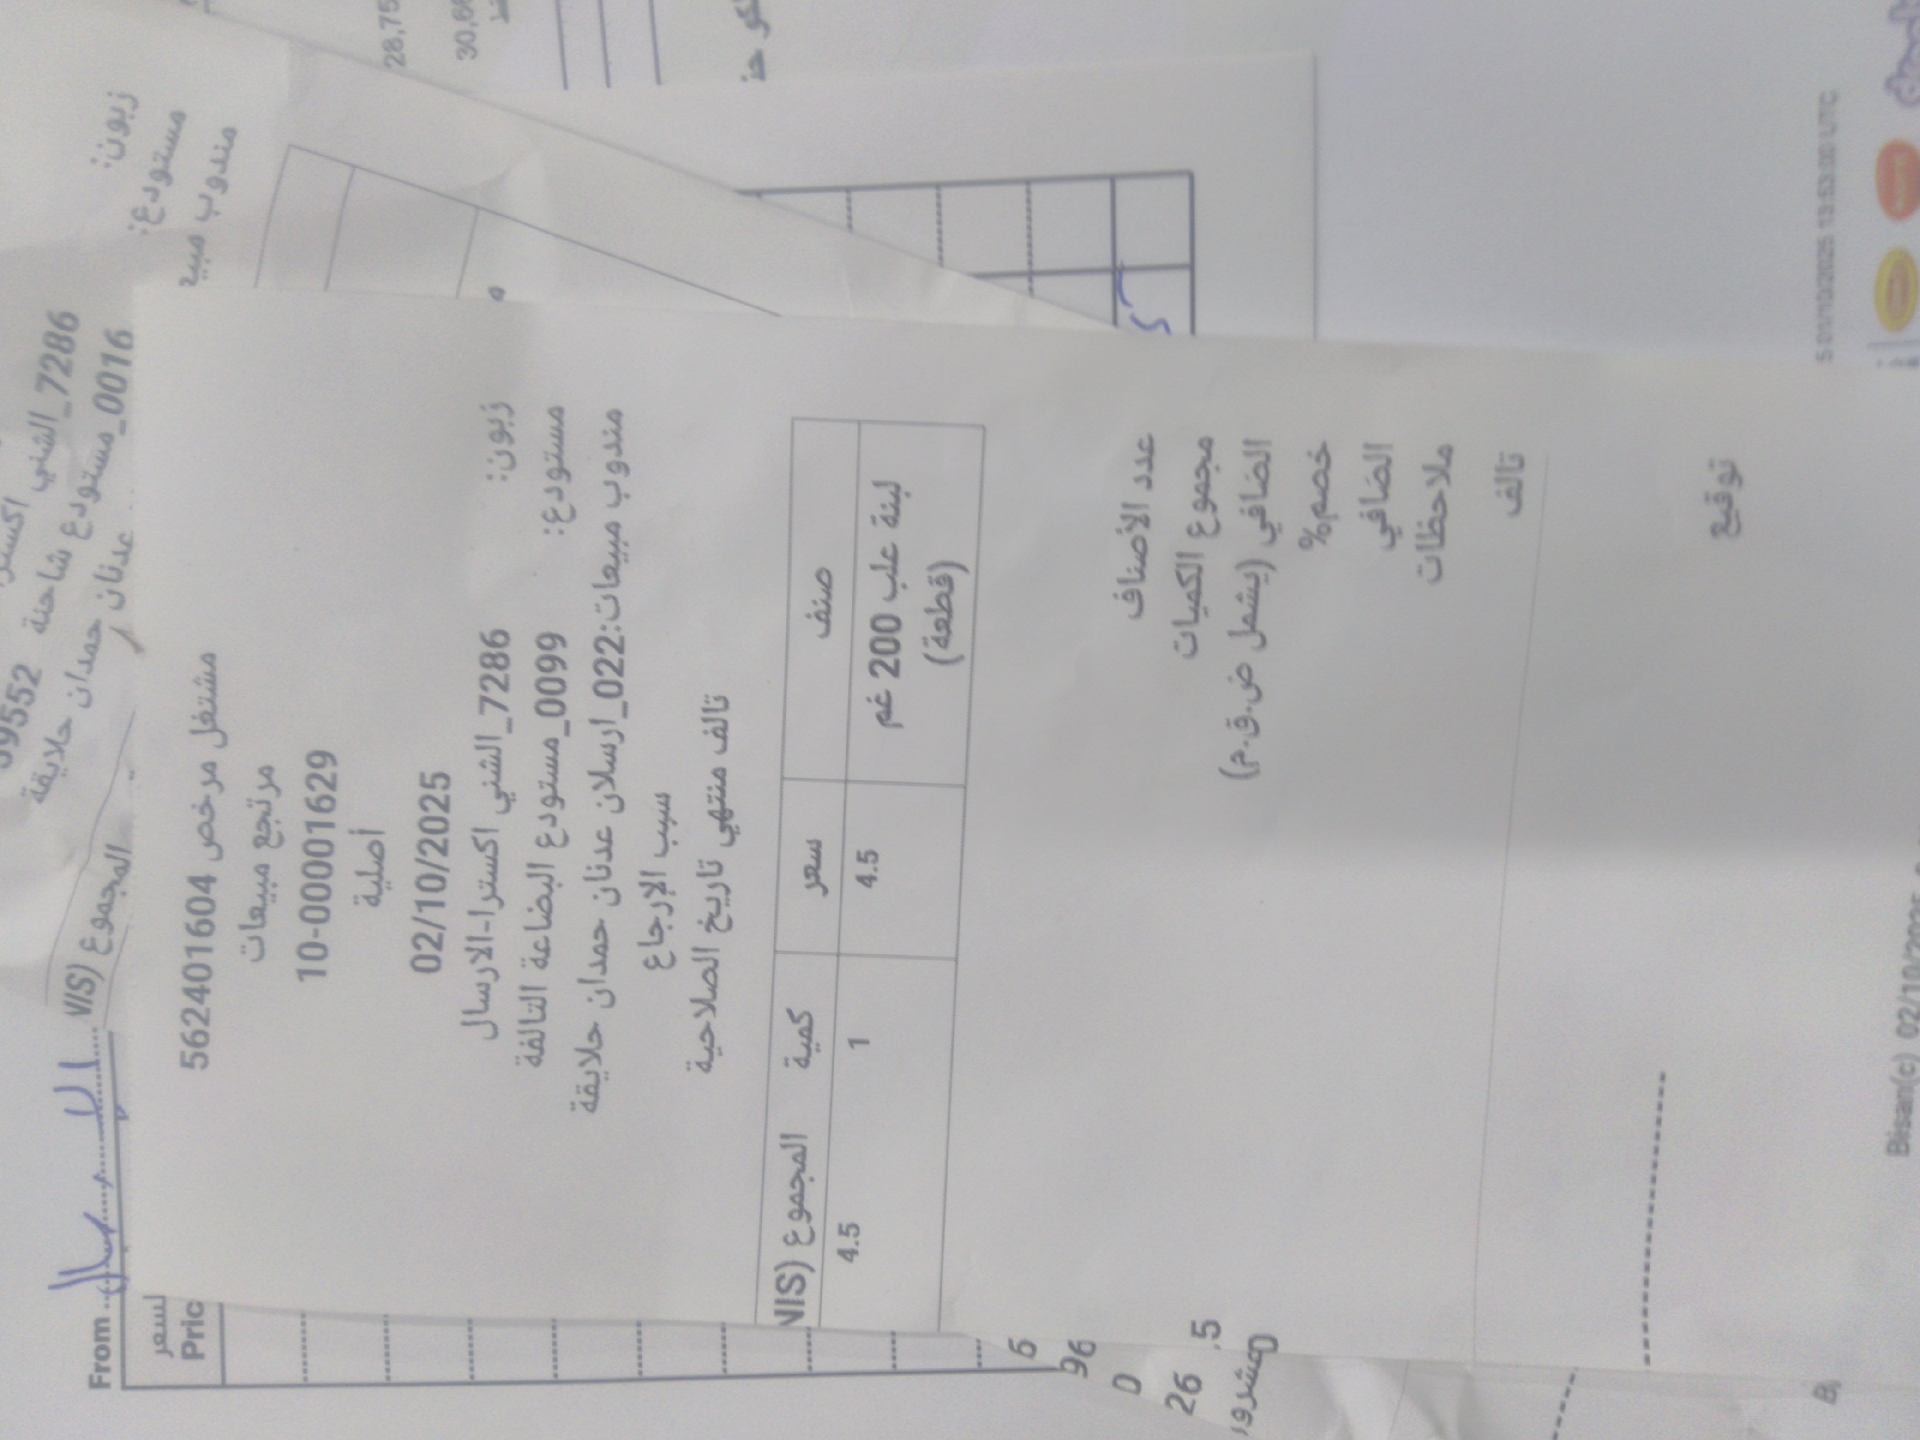 مشتغل مرخص 562401604
مرتجع مبيعات
10-00001629
أصلية
02/10/2025
زبون: 7286_الشني اكسترا-الارسال
مستودع: 0099_مستودع البضاعة التالفة
مندوب مبيعات:022_ارسلان عدنان حمدان حلايقة
سبب الإرجاع
تالف منتهي تاريخ الصلاحية
صنف سعر كمية المجموع (NIS
لبنة علب 200 غم 4.5 1 4.5
(قطعة)
عدد الأصناف
مجموع الكميات
الصافي (يشمل ض.ق.م)
خصم%
الصافي
ملاحظات
تالف
توقيع
Bisan(c) 02/10/2025
زبون:
مستودع:
مندوب مبيع
7286_الشني اكسترا
0016_مستودع شاحنة
عدنان حمدان حلايقة
المجموع (NIS
From
سعر
Pric
28,75
01/10/2025 13:53:00 UTC
96
0
26
.5